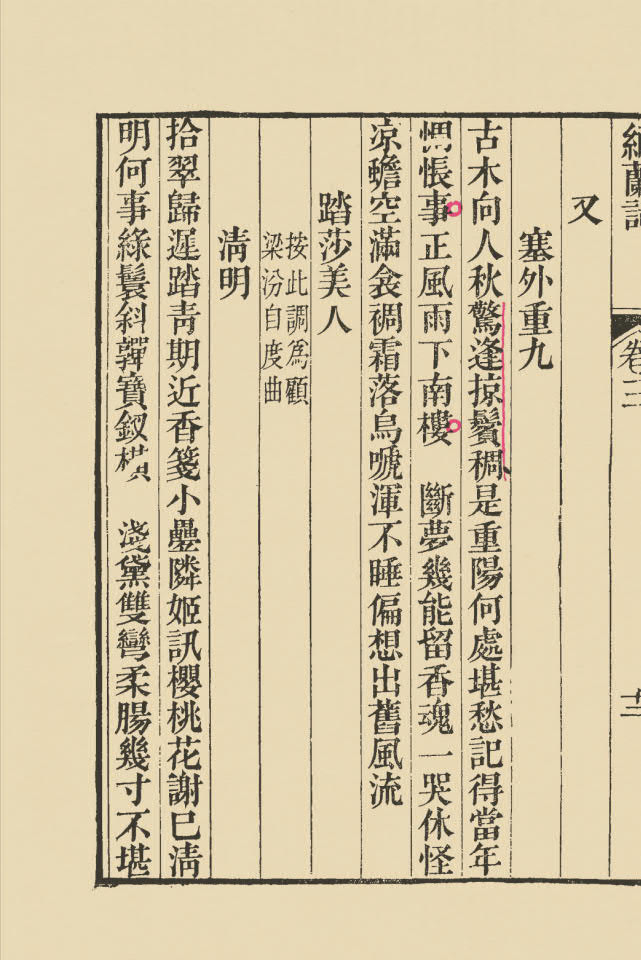 卷三
又
塞外重九
古木向人秋驚蓬掠鬢稠是重陽何處堪愁記得當年
惆悵事正風雨下南樓　斷夢幾能留香魂一哭休怪
凉蟾空滿衾裯霜落烏嗁渾不睡偏想出舊風流
踏莎美人
按此調爲顧
梁汾自度曲
清明
拾翠歸遲踏青期近香箋小疊隣姬訊櫻桃花謝已清
明何事綠鬟斜嚲寶釵橫　淺黛雙彎柔腸幾寸不堪